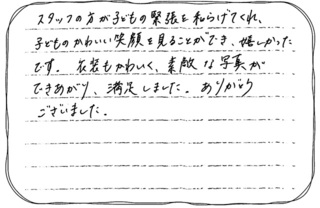 スタッフの方が子どもの緊張を和らげてくれ、
子どものかわいい笑顔を見ることができ、嬉しかった
です。衣装もかわいく、素敵な写真が
できあがり、満足しました。ありがとう
ございました。